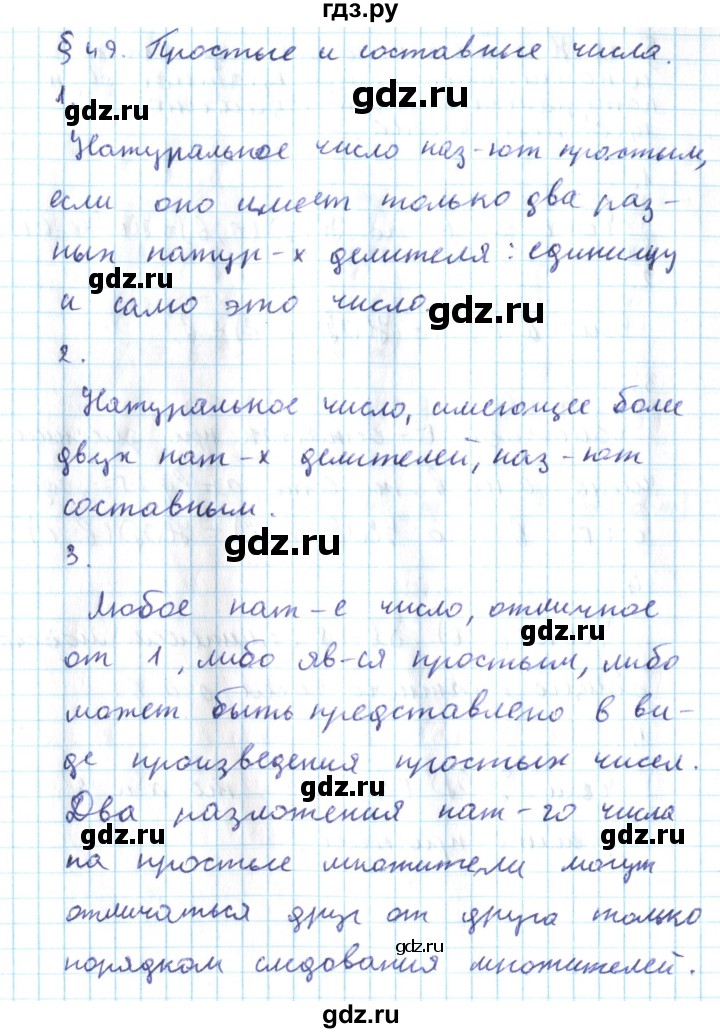 гдз.ру
§ 49. Простые и составные числа.
1.
gdz.ru
gdz.ru
Натуральное число наз-ют простым,
если оно имеет только два раз-
ных натур-х делителя: единицу
gdz.ru
и само это число.
gdz.ru
2.
Натуральное число, имеющее более
двух нат-х делителей, наз-ют
составным.
gdz.ru
3.
Любое нат-е число, отличное
gdz.ru
от 1, либо яв-ся простым, либо
может быть представлено в ви-
де произведения простых чисел.
gdz.ru
Два разложения нат-го числа
gdz.ru
gdz.ru
на простые множители могут
отличаться друг от друга только
gdz.ru
порядком следования множителей.